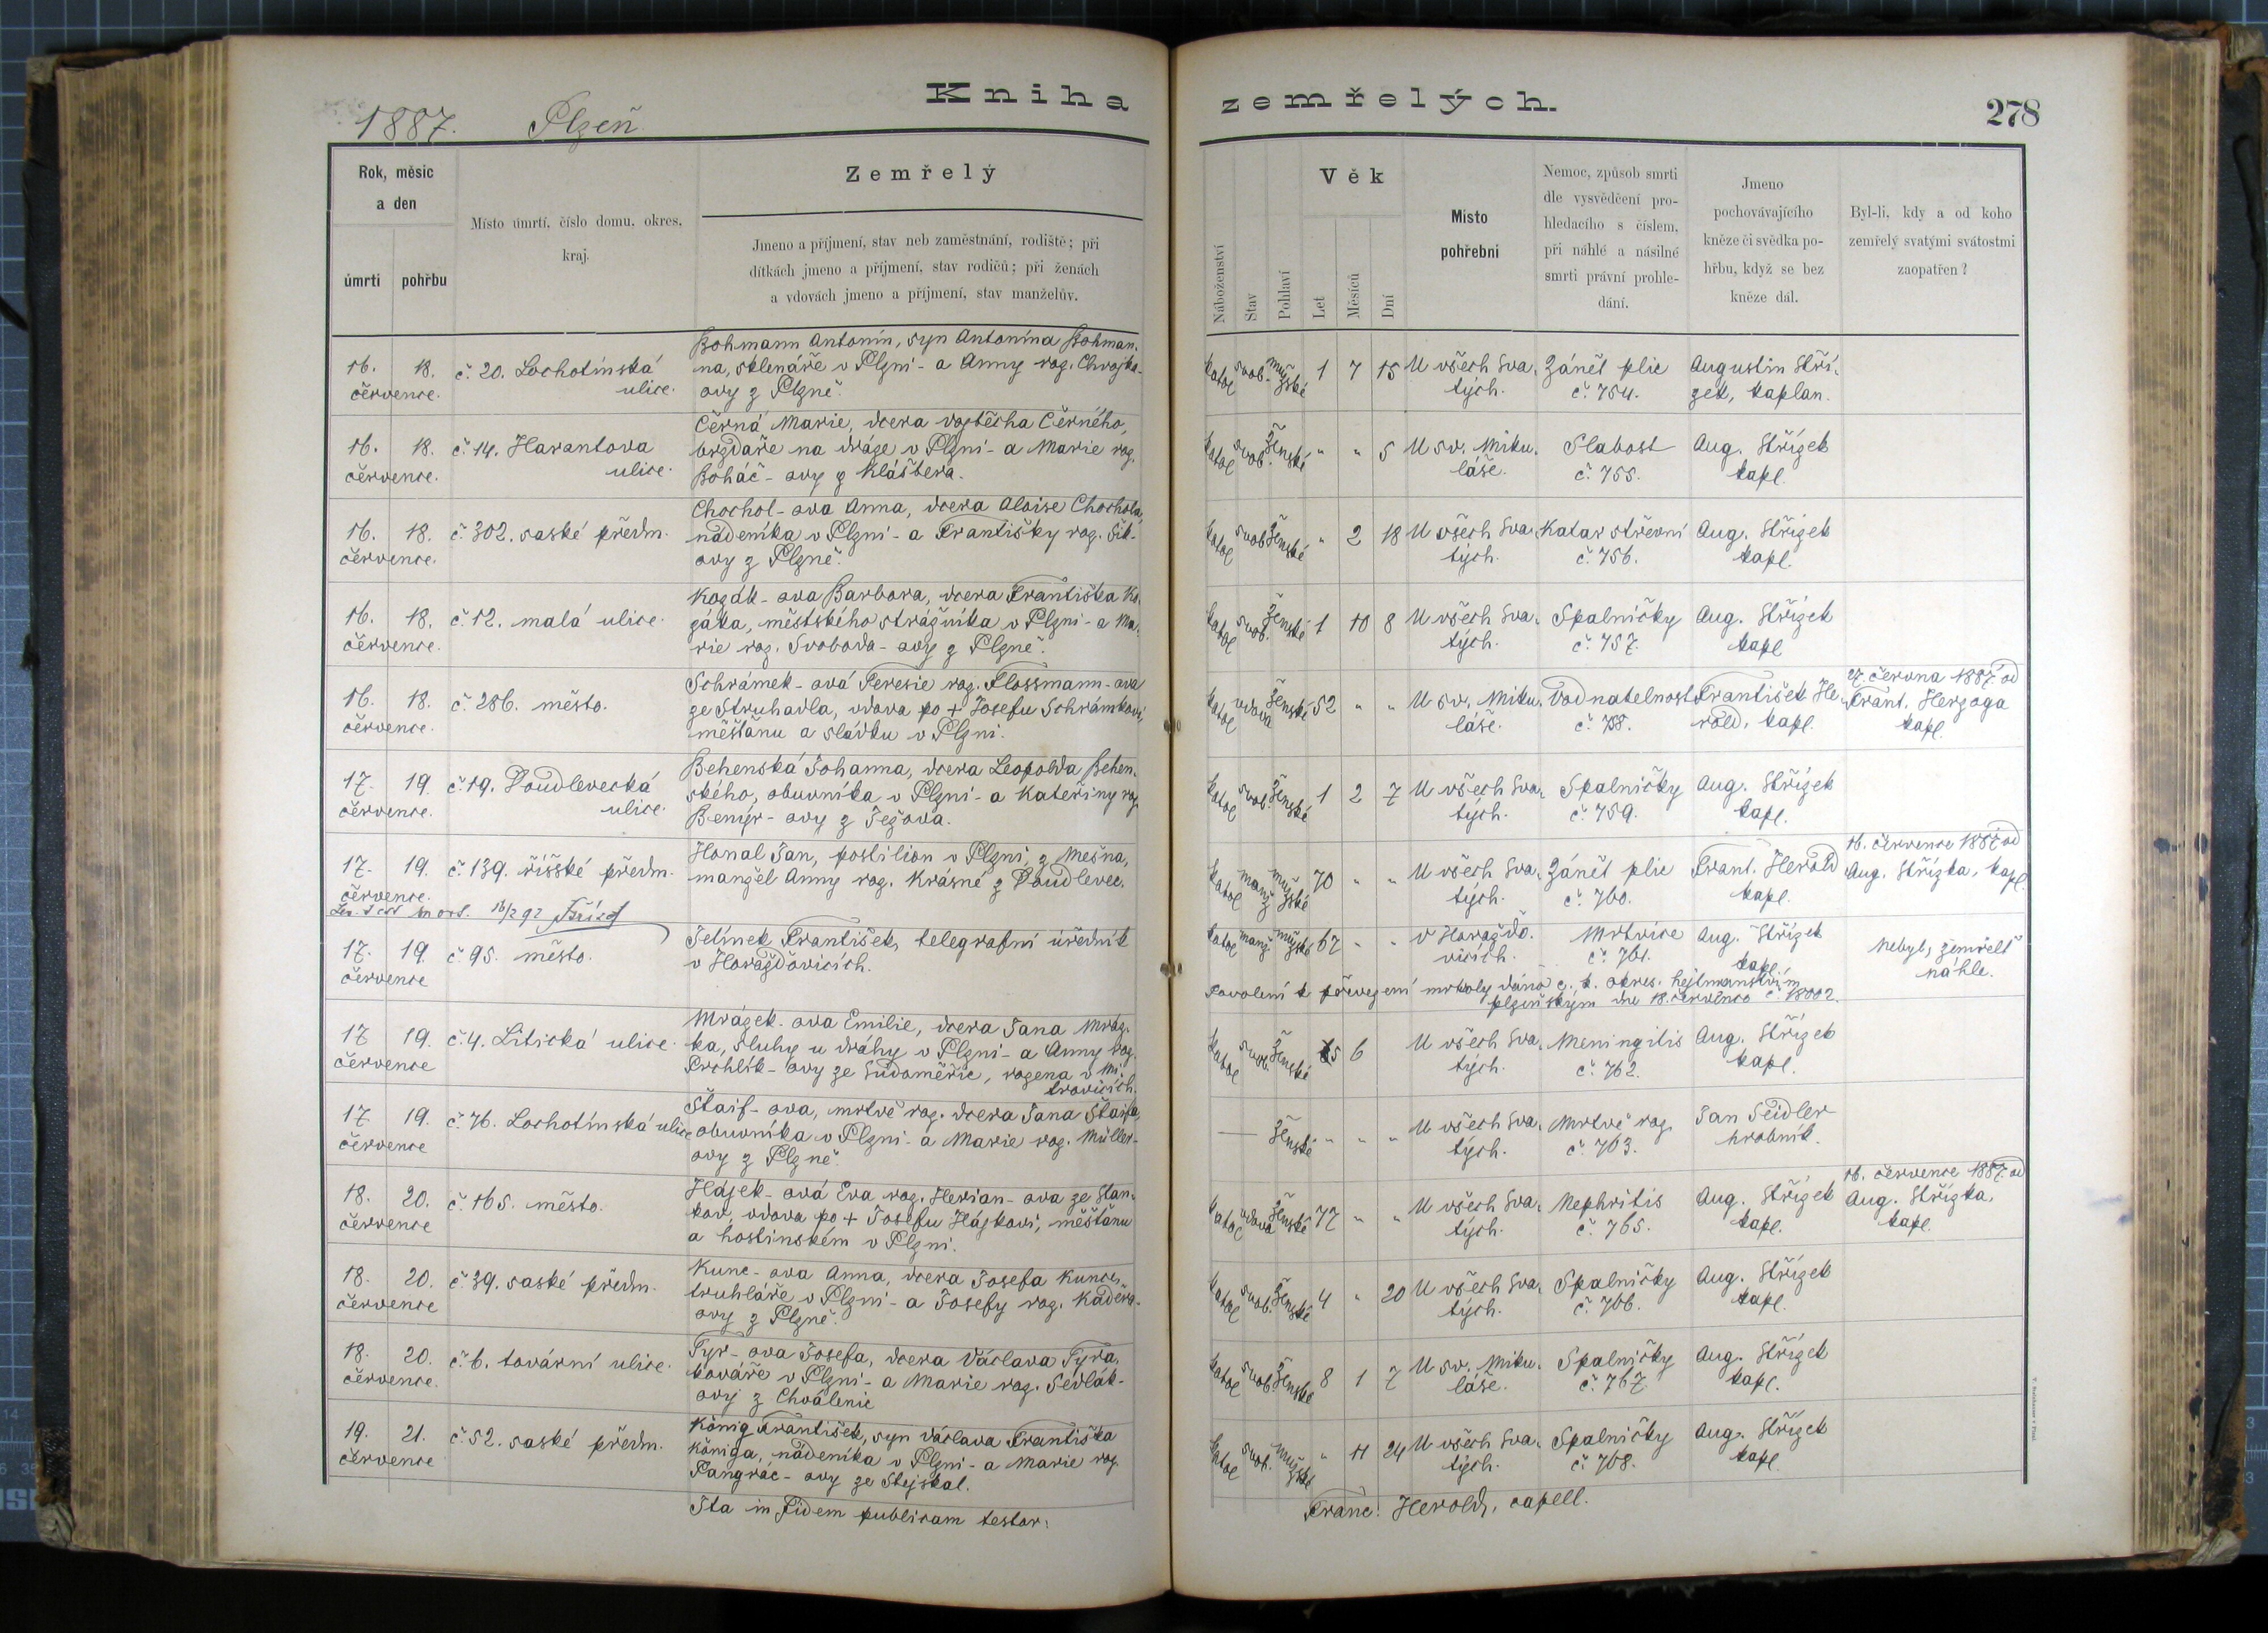 Kniha
zemřelých.
278
1887. Plzeň
Rok, měsíc
a den
úmrtí
pohřbu
Místo úmrtí, číslo domu, okres,
kraj.
Zemřelý
Jmeno a příjmení, stav neb zaměstnání, rodiště; při
dítkách jmeno a příjmení, stav rodičů; při ženách
a vdovách jmeno a příjmení, stav manželův.
Náboženství
Stav
Pohlaví
Věk
Let
Měsíců
Dní
Místo
pohřební
Nemoc, způsob smrti
dle vysvědčení pro-
hledacího s číslem,
při náhlé a násilné
smrti právní prohle-
dání.
Jmeno
pochovávajícího
kněze či svědka po-
hřbu, když se bez
kněze dál.
Byl-li, kdy a od koho
zemřelý svatými svátostmi
zaopatřen?
Bohmann Antonín, syn Antonína Bohman-
16. 18. č. 20. Lochotínská na, sklenáře v Plzni - a Anny roz. Chvojka-
července. ulice. ovy z Plzně.
katol svob. mužské 1 7 15 U všech Sva- Zánět plic Augustin Stří-
tých. č. 754. zek, kaplan.
Černá Marie, dcera Vojtěcha Černého,
16. 18. č. 14. Harantova brzdaře na dráze v Plzni - a Marie roz.
července. ulice. Boháč - ovy z Kláštera.
katol svob. ženské " " 5 U sv. Miku- Slabost Aug. Střízek
láše. č. 755. kapl.
Chochol - ova Anna, dcera Aloise Chochola,
16. 18. č. 302. saské předm. nádeníka v Plzni - a Františky roz. Šik-
července. ovy z Plzně.
katol svob. ženské " 2 18 U všech Sva- Katar střevní Aug. Střízek
tých. č. 756. kapl.
Kozák - ova Barbora, dcera Františka Ko-
16. 18. č. 12. malá ulice. záka, městského strážníka v Plzni - a Ma-
července. rie roz. Svoboda - ovy z Plzně.
katol svob. ženské 1 10 8 U všech Sva- Spalničky Aug. Střízek
tých. č. 757. kapl
Schrámek - ová Teresie roz. Flossmann - ova
16. 18. č. 286. město. ze Struhadla, vdova po + Josefu Schrámkovi,
července. měšťanu a sládku v Plzni.
27. června 1887 od
katol vdova ženské 52 " " U sv. Miku- Vodnatelnost František He- Frant. Herzoga
láše. č. 758. rold, kapl. kapl.
Behenská Johanna, dcera Leopolda Behen-
17. 19. č. 19. Doudlevecká ského, obuvníka v Plzni - a Kateřiny roz.
července. ulice. ovy z
katol svob. ženské 1 2 7 U všech Sva- Spalničky Aug. Střízek
tých. č. 759. kapl.
Honal Jan, postilion v Plzni, z Mešna,
17. 19. č. 139. říšské předm. manžel Anny roz. Krásné z Doudlevec.
července.
16. července 1887 od
katol manž mužské 70 " " U všech Sva- Zánět plic Frant. Herold Aug. Střízka, kapl.
tých. č. 760. kapl.
Jelínek František, telegrafní úředník
17. 19. č. 95. město. v Horažďovicích.
července
katol manž. mužské 67 " " v Horažďo- Mrtvice Aug. Střízek Nebyl, zemřelť
vicích. č. 761. kapl. náhle.
Povolení k převezení mrtvoly dáno c. k. okres. hejtmanstvím
plzeňským dne 18. července č. 18002.
Mrázek - ova Emilie, dcera Jana Mráz-
17 19. č. 4. Litická ulice. ka, sluhy u dráhy v Plzni - a Anny roz.
července Prchlík - ovy ze Sudoměřic, rozena v Mi-
trovicích.
katol svob. ženské 5 6 U všech Sva- Meningitis Aug. Střízek
tých. č. 762. kapl.
Štaif - ova, mrtvě roz. dcera Jana Štaifa,
17 19. č. 76. Lochotínská ulice obuvníka v Plzni - a Marie roz. Müller-
července ovy z Plzně.
— ženské " " " U všech Sva- Mrtvě roz. Jan Seidler
tých. č. 763. hrobník.
Hájek - ová Eva roz. Hersian - ova ze Stan-
18. 20. č. 165. město. kov, vdova po + Josefu Hájkovi, měšťanu
července a hostinském v Plzni.
16. července 1887. od
katol vdova ženské 77 " " U všech Sva- Nephritis Aug. Střízek Aug. Střízka,
tých. č. 765. kapl. kapl.
Kunc - ova Anna, dcera Josefa Kunce,
18. 20. č. 39. saské předm. truhláře v Plzni - a Josefy roz. Kadera-
července ovy z Plzně.
katol svob. ženské 4 " 20 U všech Sva- Spalničky Aug. Střízek
tých. č. 766. kapl.
Tyr - ova Josefa, dcera Václava Tyra,
18. 20. č. 6. tovární ulice. kováře v Plzni - a Marie roz. Sedlák-
července. ovy z Chválenic
katol svob. ženské 8 1 7 U sv. Miku- Spalničky Aug. Střízek
láše. č. 767. kapl.
König František, syn Václava Františka
19. 21. č. 52. saské předm. Königa, nádeníka v Plzni - a Marie roz.
července Pangrác - ovy ze Stejskal.
katol svob. mužské " 11 24 U všech Sva- Spalničky Aug. Střízek
tých. č. 768. kapl.
Ita in Fidem publicam testor:
Franc. Herold, capell.